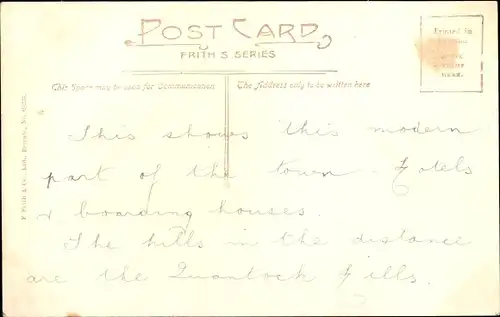 POST CARD
FRITH'S SERIES
This Space may be used for Communication
The Address only to be written here
Printed in
HERE.
F. Frith & Co., Ltd., Reigate, No.
This shows this modern
part of the town - Hotels
& boarding houses.
The hills in the distance
are the Quantock Hills.